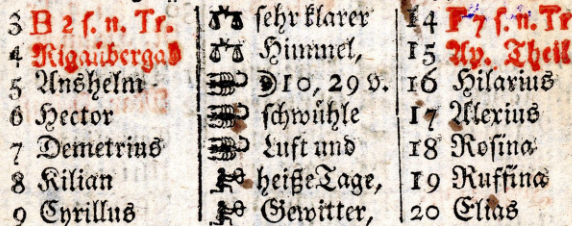 3 B 2 s. n. Tr. sehr klarer 14 F 7 s. n. Tr
4 Rigaübergab Himmel, 15 Ap. Theil
5 Anshelm 10, 29 v. 16 Hilarius
6 Hector schwühle 17 Alexius
7 Demetrius Luft und 18 Rosina
8 Kilian heiße Tage, 19 Ruffina
9 Cyrillus Gewitter, 20 Elias